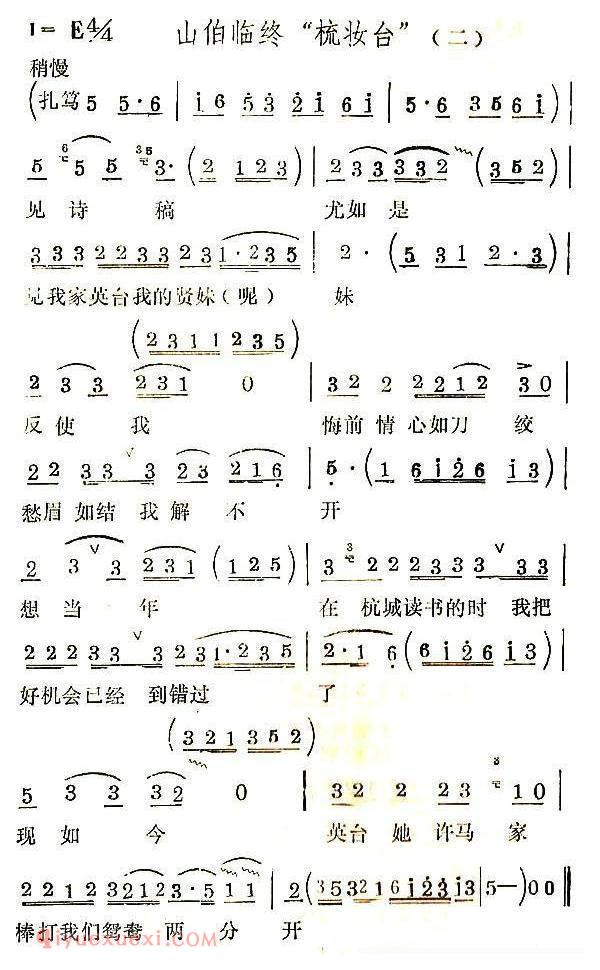 1= E 4/4 山伯临终“梳妆台”（二）
稍慢
(扎笃 5 5·6 | i6 53 2i 6i | 5·6 3561)
5 5 5 3· (2 123) | 233 332 (352)
见 诗 稿 尤如 是
333 2233 23 1·235 | 2· (5 31 2·3)
见我家英台我的贤妹（呢） 妹
(2311 235)
2 3 3 231 0 | 32 2 2212 30
反 使 我 悔前 情 心如刀 绞
22 33 3 23 216 | 5·(1 6i26 i3)
愁眉 如结 我 解 不 开
2 3 3 231 (125) | 3 222333 33
想 当 年 在 杭城读书的时 我把
22233 3 23 1·235 | 2·16 (6i26 i3)
好机会已经 到错过 了
(321 352)
5 3 3 32 0 | 32 2 23 10
现 如 今 英台 她 许马 家
2212 3212 3·5 11 | 2 (353216i23i3 | 5—)00 ‖
棒打我们鸳鸯 两 分 开
qiyuexuexi.com